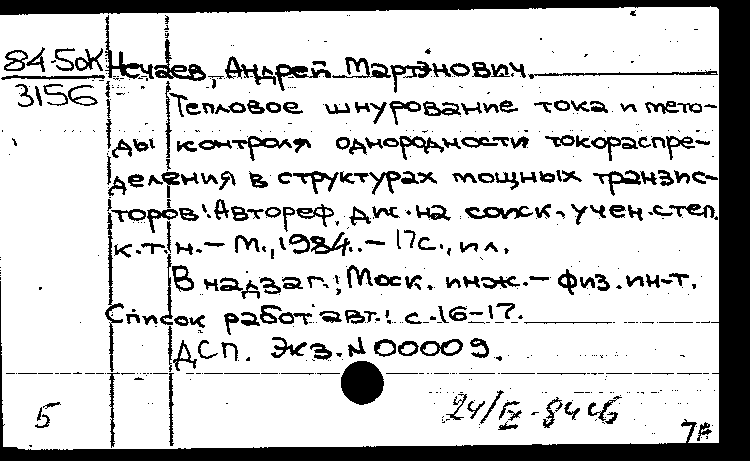 84-5ОК Нечаев, Андрей Мартэнович.
3156
Тепловое шнурование тока и мето-
ды контроля однородности токораспре-
деления в структурах мощных транзис-
торов: Автореф. дис. на соиск. учен. степ.
к.т.н. - М., 1984. - 17с., ил.
В надзаг.: Моск. инж. - физ. ин-т.
Список работ авт.: с. 16-17.
ДСП. Экз. N 00009.
5
24/IV-84
7А